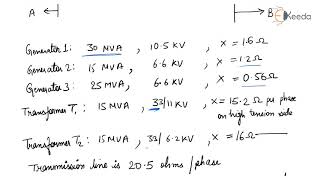 A B
Ekeeda
Generator 1: 30 MVA, 10.5 KV, X = 1.6 Ω
Generator 2: 15 MVA, 6.6 KV, X = 1.2 Ω
Generator 3: 25 MVA, 6.6 KV, X = 0.56 Ω
Transformer T₁: 15 MVA, 33/11 KV, X = 15.2 Ω per phase
on high tension side
Transformer T₂: 15 MVA, 33/6.2 KV, X = 16 Ω
Transmission line is 20.5 ohms/phase